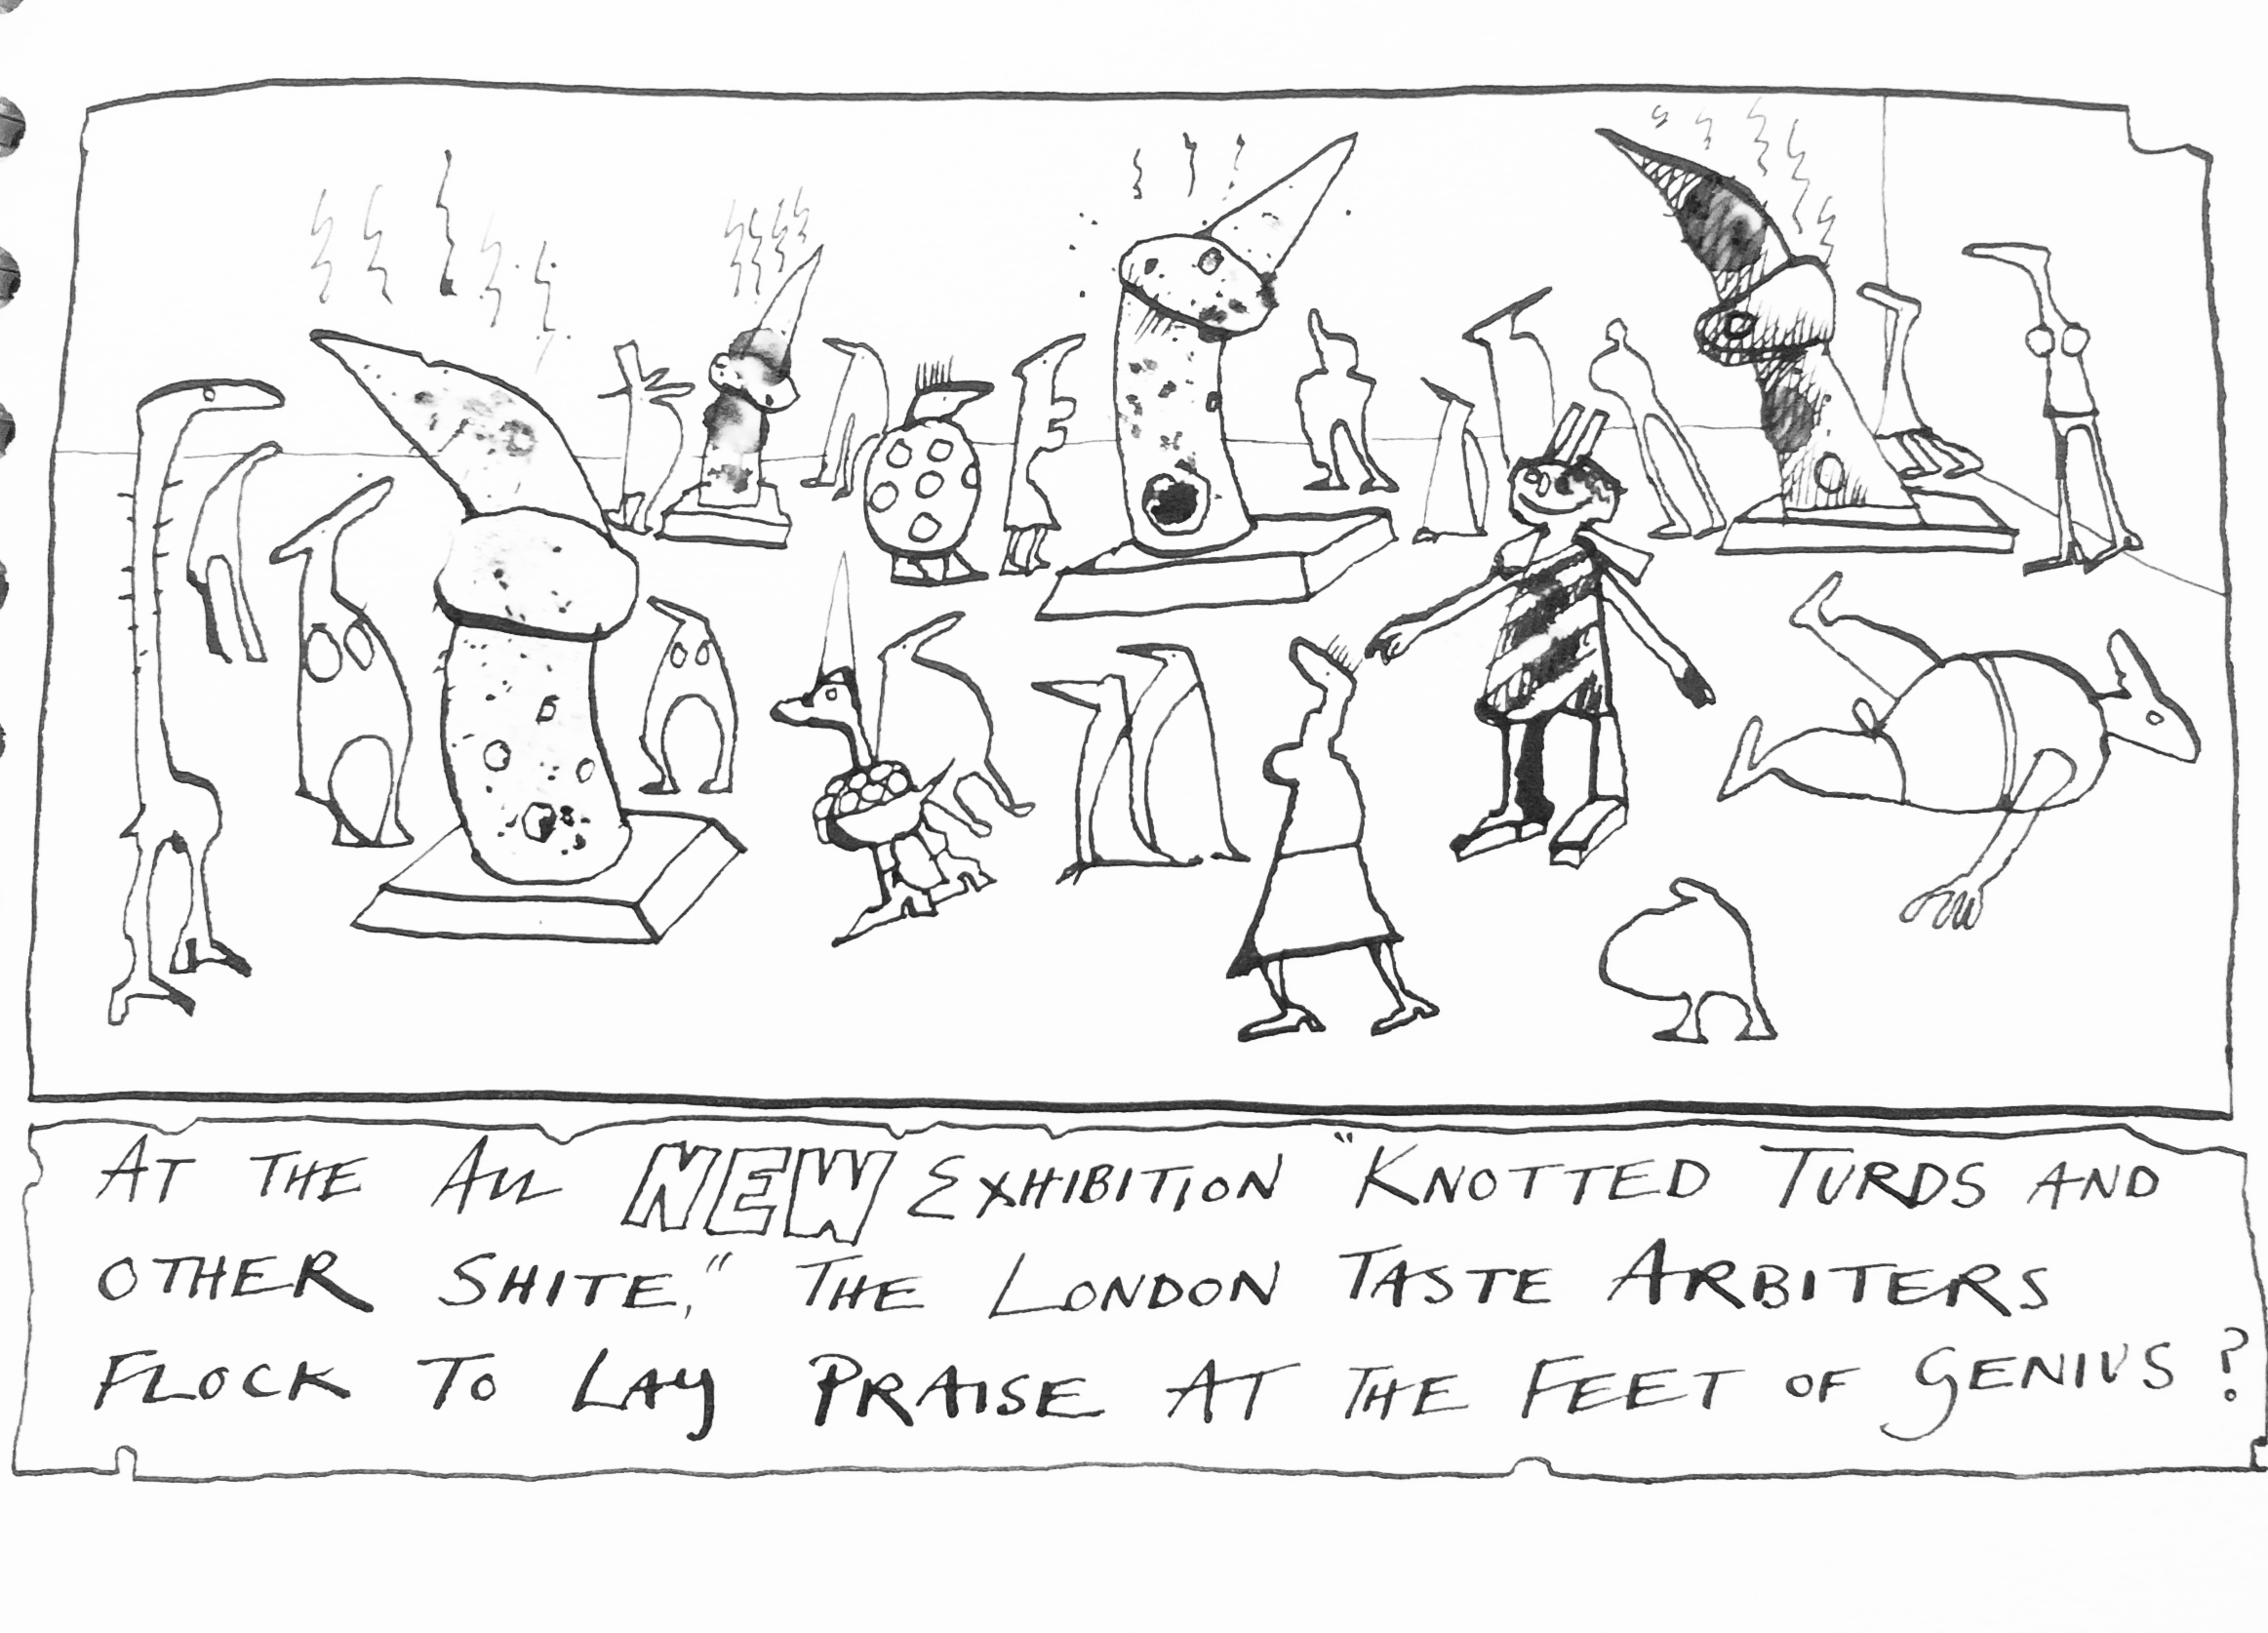 AT THE ALL NEW EXHIBITION "KNOTTED TURDS AND
OTHER SHITE," THE LONDON TASTE ARBITERS
FLOCK TO LAY PRAISE AT THE FEET OF GENIUS?